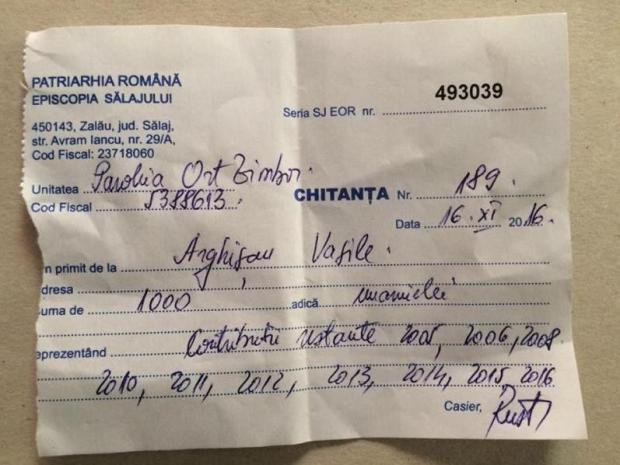 PATRIARHIA ROMÂNĂ
EPISCOPIA SĂLAJULUI
493039
Seria SJ EOR nr.
450143, Zalău, jud. Sălaj,
str. Avram Iancu, nr. 29/A,
Cod Fiscal: 23718060
Unitatea Parohia Ort Zimbor.
Cod Fiscal 5388613.
CHITANȚA Nr. 189.
Data 16. XI 2016.
n primit de la Arghișan Vasile.
dresa
uma de 1000 adică unamielei
eprezentând Contributii restante 2005, 2006, 2008
2010, 2011, 2012, 2013, 2014, 2015 2016
Casier,